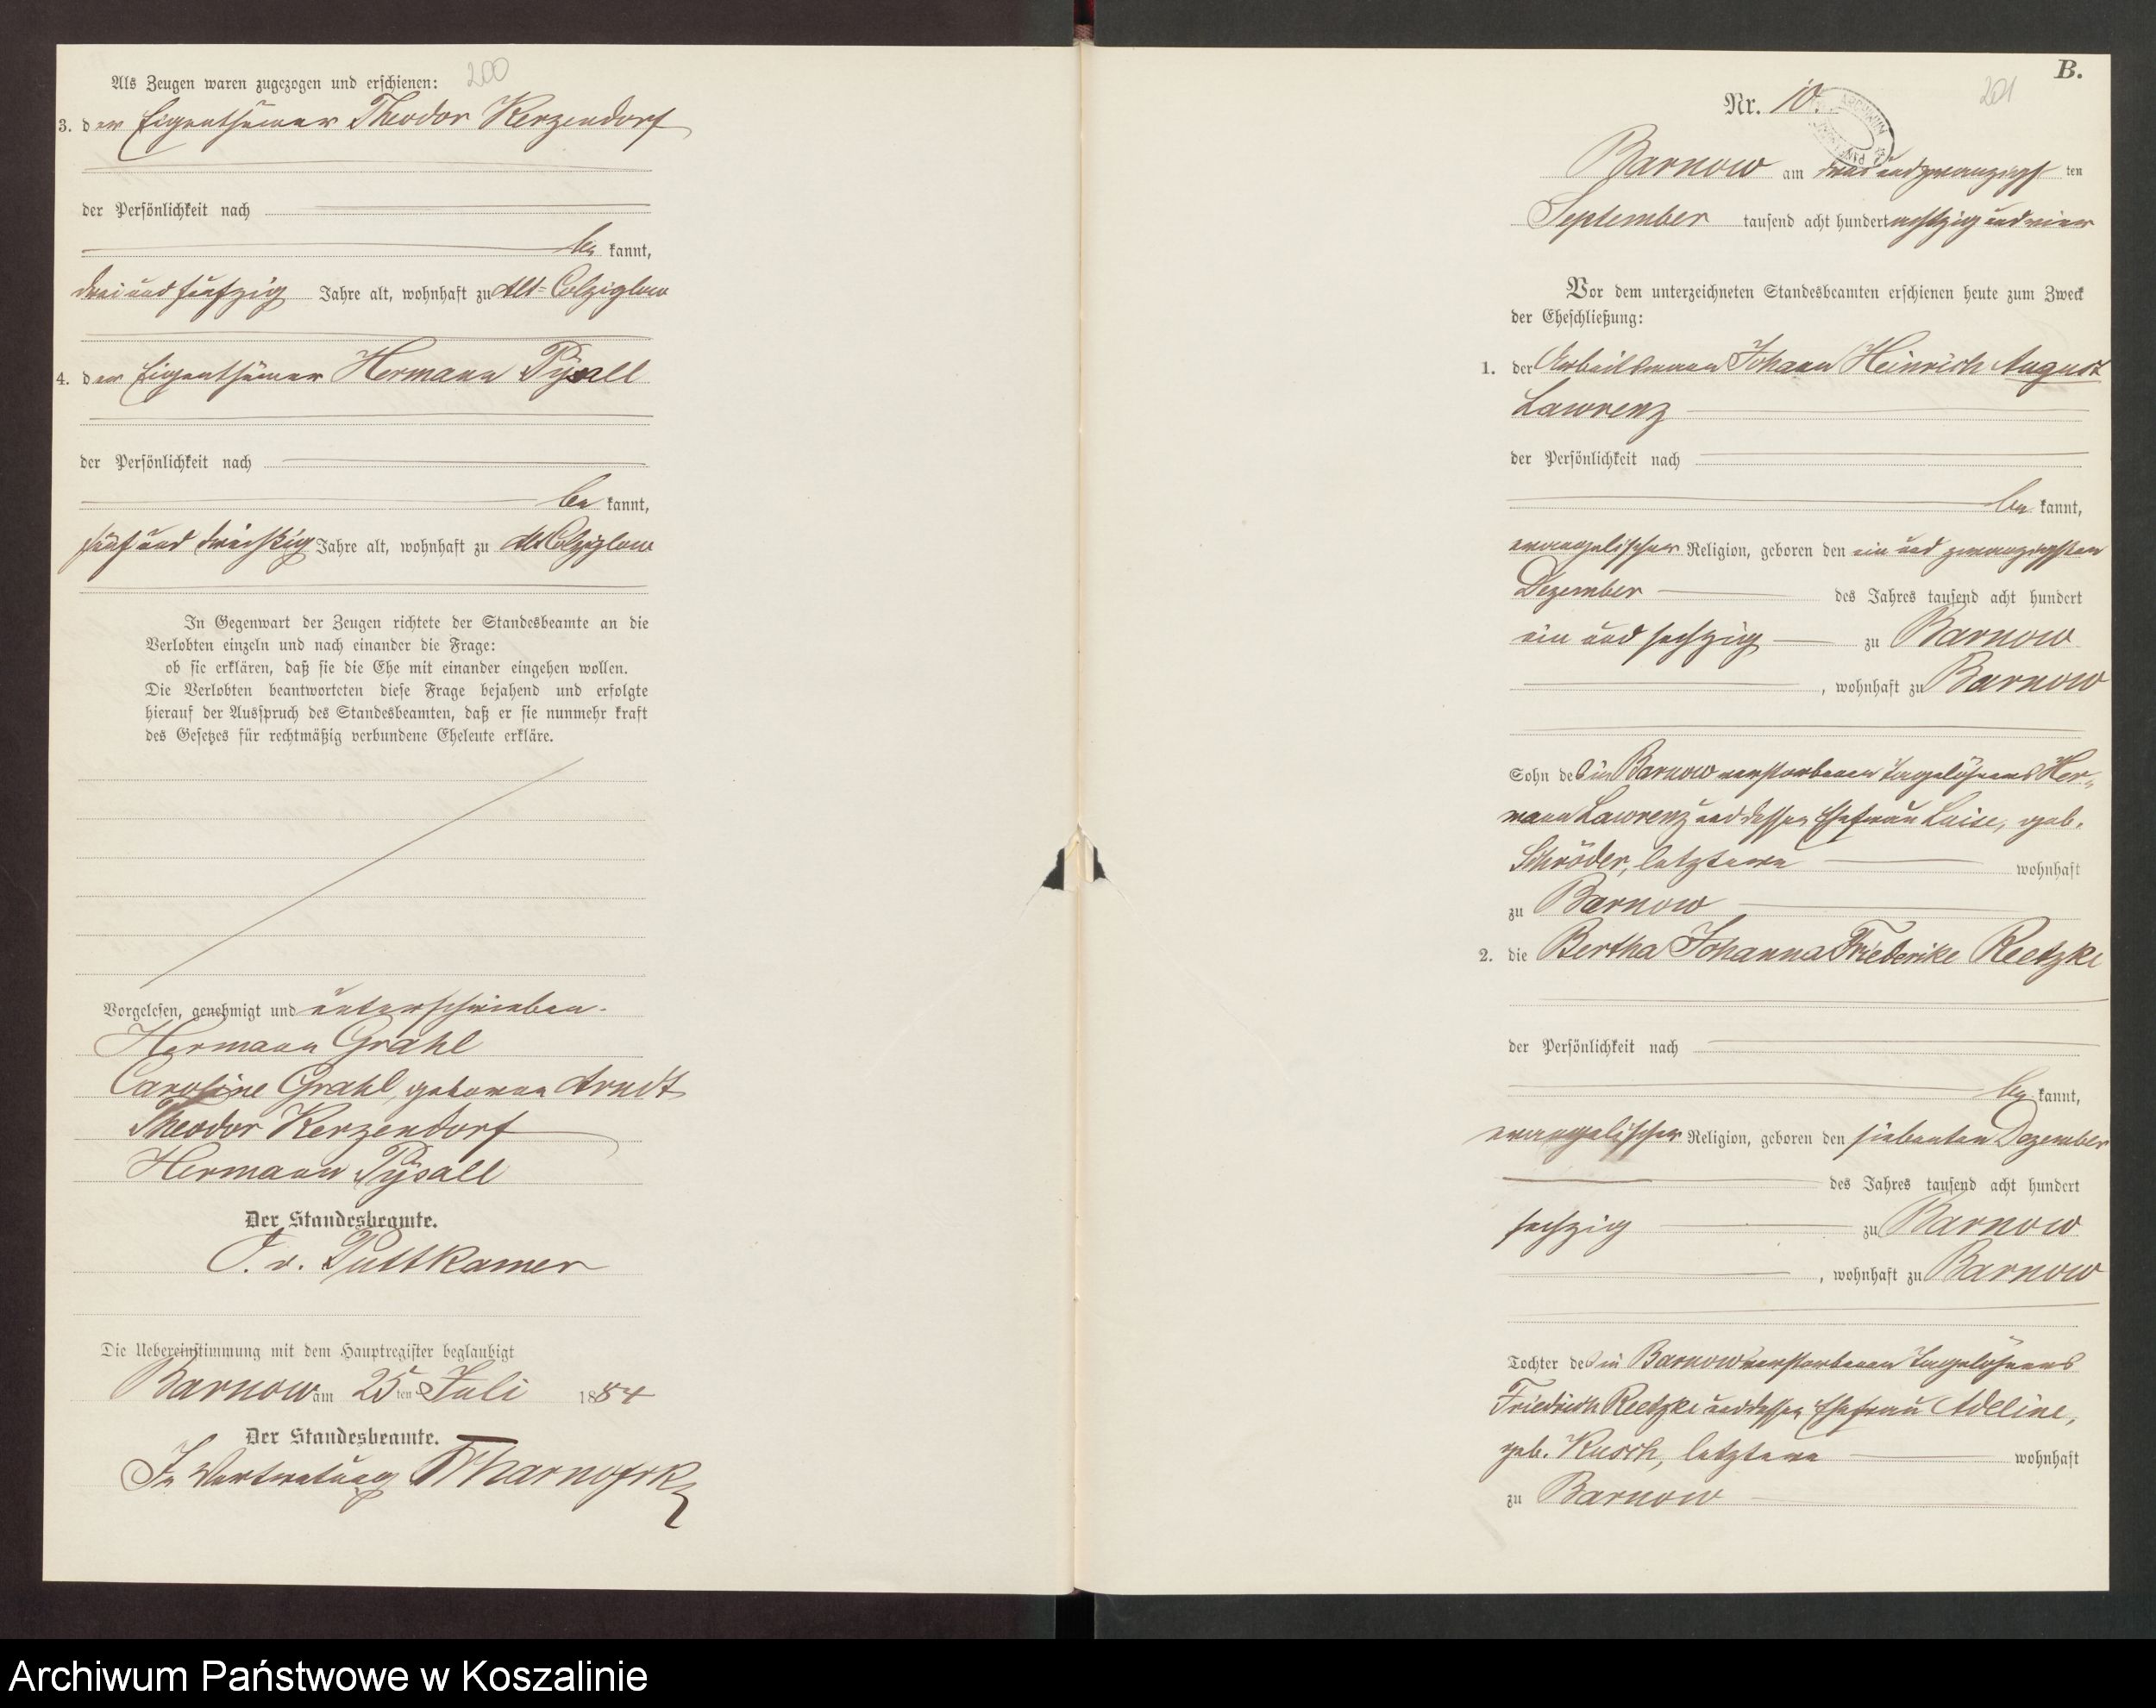 Als Zeugen waren zugezogen und erschienen:
200
3. der Eigenthümer Theodor Kerzendorf
der Persönlichkeit nach
be kannt,
drei und fünfzig Jahre alt, wohnhaft zu Alt-Colziglow
4. der Eigenthümer Hermann Pÿsall
der Persönlichkeit nach
be kannt,
fünf und dreißig Jahre alt, wohnhaft zu Alt Colziglow
In Gegenwart der Zeugen richtete der Standesbeamte an die
Verlobten einzeln und nach einander die Frage:
ob sie erklären, daß sie die Ehe mit einander eingehen wollen.
Die Verlobten beantworteten diese Frage bejahend und erfolgte
hierauf der Ausspruch des Standesbeamten, daß er sie nunmehr kraft
des Gesetzes für rechtmäßig verbundene Eheleute erkläre.
Vorgelesen, genehmigt und unterschrieben.
Hermann Grahl
Caroline Grahl, geborene Arndt
Theodor Kerzendorf
Hermann Pÿsall
Der Standesbeamte.
J. v. Puttkamer
Die Uebereinstimmung mit dem Hauptregister beglaubigt
Barnow am 25 ten Juli 1884
Der Standesbeamte.
In Vertretung
B.
201
Nr. 10.
Barnow am drei und zwanzigst ten
September tausend acht hundert achtzig und vier
Vor dem unterzeichneten Standesbeamten erschienen heute zum Zweck
der Eheschließung:
1. der Arbeitsmann Johann Heinrich August
Lawrenz
der Persönlichkeit nach
be kannt,
evangelischer Religion, geboren den ein und zwanzigsten
Dezember des Jahres tausend acht hundert
ein und sechzig zu Barnow
, wohnhaft zu Barnow
Sohn des in Barnow verstorbenen Tagelöhners Her-
mann Lawrenz und dessen Ehefrau Luise, geb.
Schröder, letztere wohnhaft
zu Barnow
2. die Bertha Johanna Friederike Reetzke
der Persönlichkeit nach
be kannt,
evangelischer Religion, geboren den siebenten Dezember
des Jahres tausend acht hundert
sechzig zu Barnow
, wohnhaft zu Barnow
Tochter des in Barnow verstorbenen Tagelöhners
Friedrich Reetzke und dessen Ehefrau Adeline,
geb. Kusch, letztere wohnhaft
zu Barnow
Archiwum Państwowe w Koszalinie